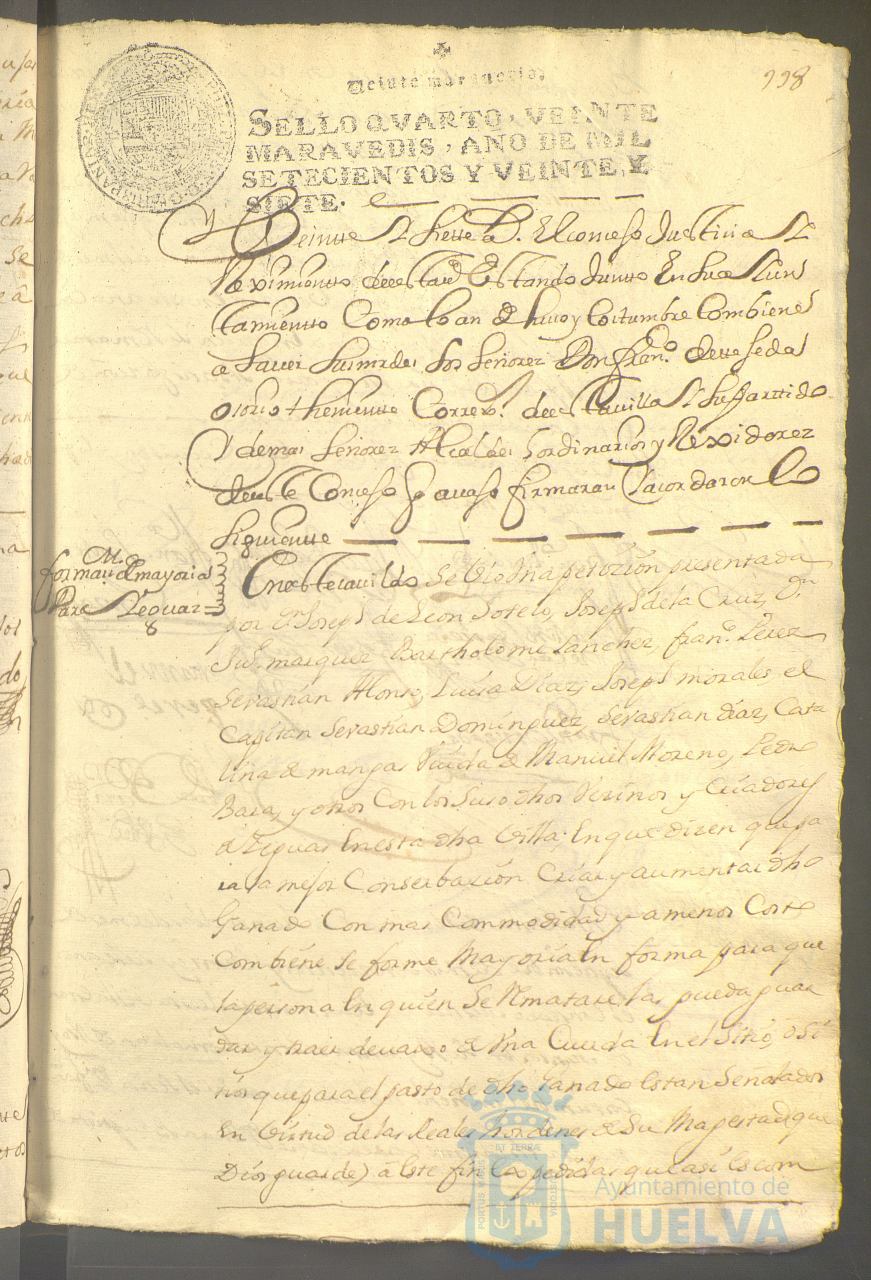 998
Veinte maravedis,
SELLO QVARTO, VEINTE
MARAVEDIS, AÑO DE MIL
SETECIENTOS Y VEINTE Y
SIETE.
y Beintte y siette a.s El consejo Justicia y
Reximientto deestau.a Estando Juntto En su Ayun
tamientto Como lo an de husso y Costumbre Combiene
a Sauer sus mrdes los señorez Don fran.co de
osorio thenientte Correx.r deestauilla y su Parttido
y demas señorez Alcaldes hordinarios y Rexidorez
deeste Consejo q auajo firmaran y acordaron lo
siguientte
M.
formaz.on de mayoria
Para Yeguaz
En este cauildo se vio una petizion presentada
por Dn Joseph de Leon Sotelo, Joseph de la Cruz, Dn
Ju.o marquez Bartholome Sanchez, fran.co Perez
Sevastian Alonso, Luzia Diaz, Joseph morales, el
Capitan Sevastian Dominguez, Sevastian diaz, Cata
lina de mangas Viuda de Manuel Moreno, Pedro
Baza, y otros Con los suso dhos Vezinos y Criadores
de Yeguas En esta dha Villa; En que dizen que pa
ra la mejor Conserbazion Criar y aumentar dho
Ganado Con mas Commodidad y a menor Coste
Combiene se forme Mayoria En forma para que
la persona En quien se Rematare las pueda guar
dar y traer devaxo de Una Cuerda En el Sitio, o Si
tios que para el pasto de dho Ganado Estan Señalados
En Virtud de las Reales hordenes de Su Magestad (que
Dios guarde) a Este fin la pedidas que asi Es com
PORTUS
ET TERRÆ
CUSTODIA
Ayuntamiento de
HUELVA